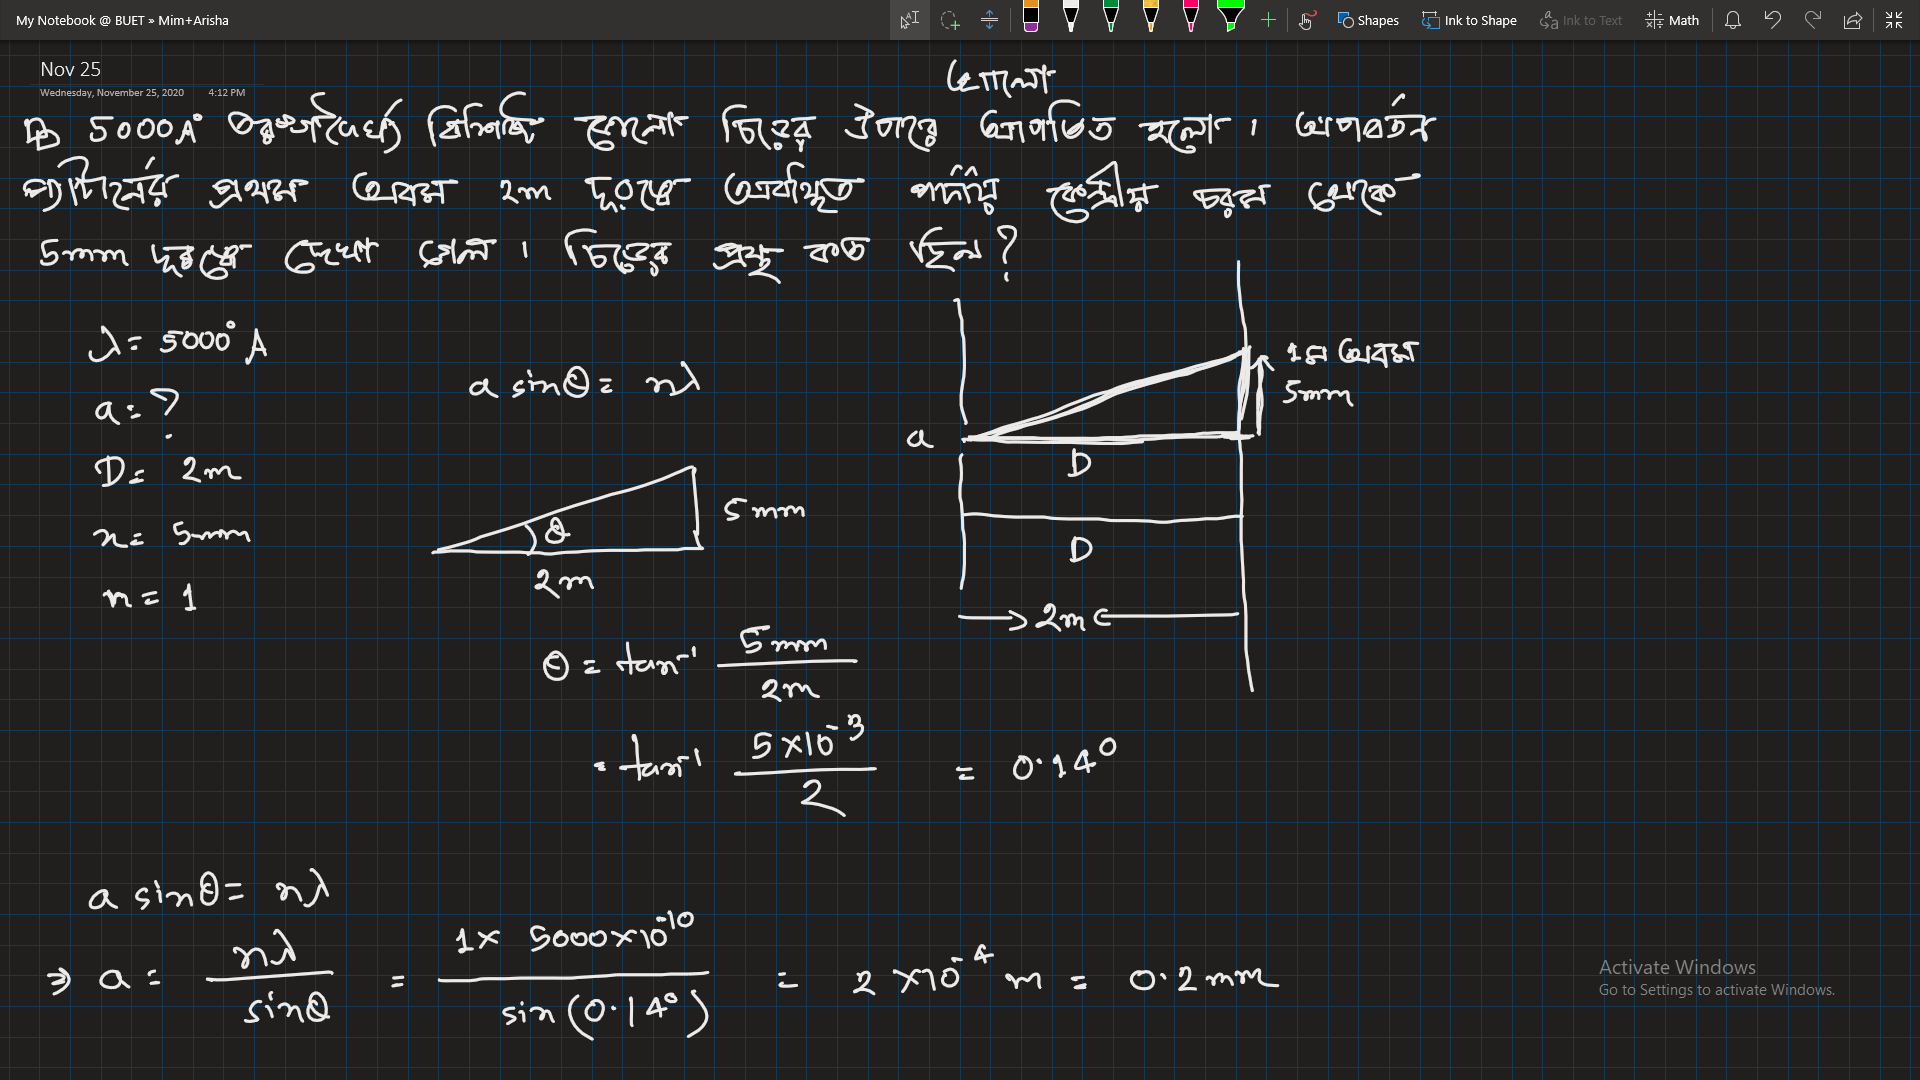 My Notebook @ BUET » Mim+Arisha
Shapes
Ink to Shape
Ink to Text
Math
Nov 25
Wednesday, November 25, 2020 4:12 PM
আলো
5000A° তরঙ্গদৈর্ঘ্য বিশিষ্ট আলো চিড়ের উপরে আপতিত হলো। অপবর্তন
প্যাটার্নের প্রথম অবম 2m দূরত্বে অবস্থিত পর্দায় কেন্দ্রীয় চরম থেকে
5mm দূরত্বে দেখা গেল। চিড়ের প্রস্থ কত ছিল?
λ = 5000°A
a = ?
D = 2m
x = 5mm
n = 1
a sinθ = nλ
θ
5mm
2m
a
D
D
1ম অবম
5mm
2m
θ = tan⁻¹ 5mm / 2m
= tan⁻¹ 5×10⁻³ / 2 = 0.14°
a sinθ = nλ
⇒ a = nλ / sinθ = 1× 5000×10⁻¹⁰ / sin(0.14°) = 2×10⁻⁴ m = 0.2mm
Activate Windows
Go to Settings to activate Windows.